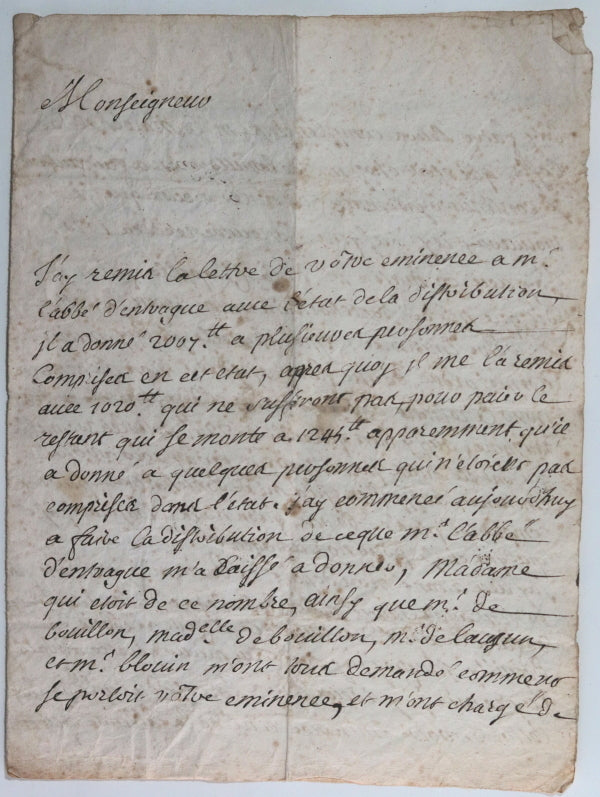 Monseigneur
J'ay remis la lettre de vôtre eminence a mr.
l'abbé d'entrague avec l'état de la distribution,
jl a donné 2007.tt a plusieurs personnes
comprises en cet etat, apres quoy jl me l'a remis
avec 1020tt qui ne suffiront pas, pour paier le
restant qui se monte a 1245.tt apparemment qu'il
a donné a quelques personnes qui n'etoient pas
comprises dans l'état. j'ay commencé aujourdhuy
a faire la distribution de ce que mr. l'abbé
d'entrague m'a laissé a donner, Madame
qui etoit de ce nombre, ainsy que mr. de
bouillon, madelle. de bouillon, mr. de lauzun,
et mr. blouin m'ont tous demandé comment
se portoit vôtre eminence, et m'ont chargé de